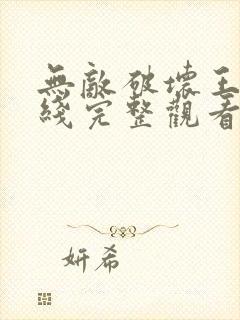 無敵破壞王
綫完整觀看
妍希